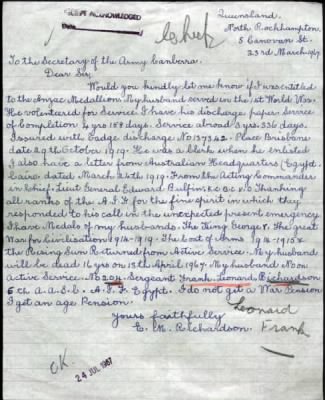 RECEIPT ACKNOWLEDGED
Queensland
North Rockhampton.
5 Canovan St.
23rd March, 1967
Check
To the Secretary of the Army Canberra.
Dear Sir,
Would you kindly let me know if I was entitled
to the Anzac Medallion. My husband served in the 1st World War.
He volunteered for Service. I have his discharge paper. Service
of Completion 4 yrs 158 days. Service abroad 3 yrs. 336 days.
Issured with Badge discharge No 37362. Place Brisbane
date 29th October 1919. He was a clerk when he enlisted
I also have a letter from Australian Headquarters (Egypt.
Cairo dated March 26th 1919. From the Acting Commander
in Chief. Lieut General Edward Bulfin, K.C.B. C.V.O Thanking
all ranks of the A.I.F for the fine spirit in which they
responded to his call in the unexpected present emergency
I have Medals of my husbands. The King George V. The great
War for Civilisation 1914-1919. The Coat of Arms 1914-1915 &
the Rising Sun Returned from Active Service. My husband
will be dead 16 yrs on 13th April 1967. My husband No on
active Service. No 204. Sergeant Frank, Leonard, Richardson
6th A.A.S.C. A.I.F. Egypt. I do not get a War Pension
I get an age Pension.
Leonard
Frank
Yours faithfully
E. M. Richardson
CK.
24 JUL 1967